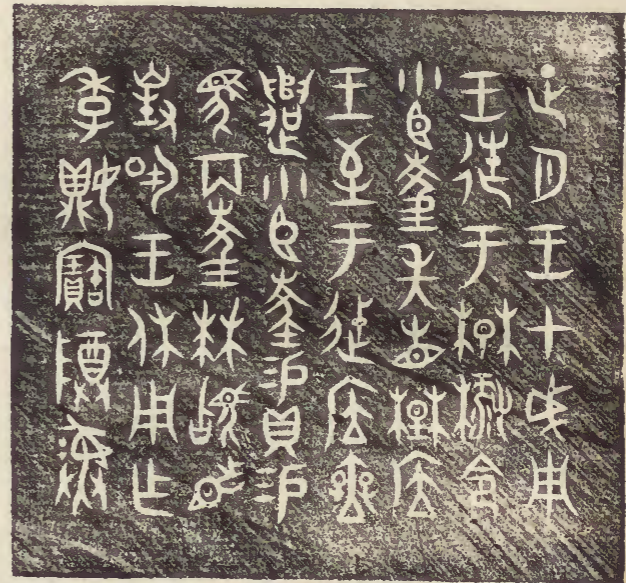 正月王才成周
王𨑒于楚麓令
小臣夌先省楚应
王至于𨑒应無
遣小臣夌易貝易
馬丙夌拜𩒨首
對揚王休用乍
季㛗寶尊彝